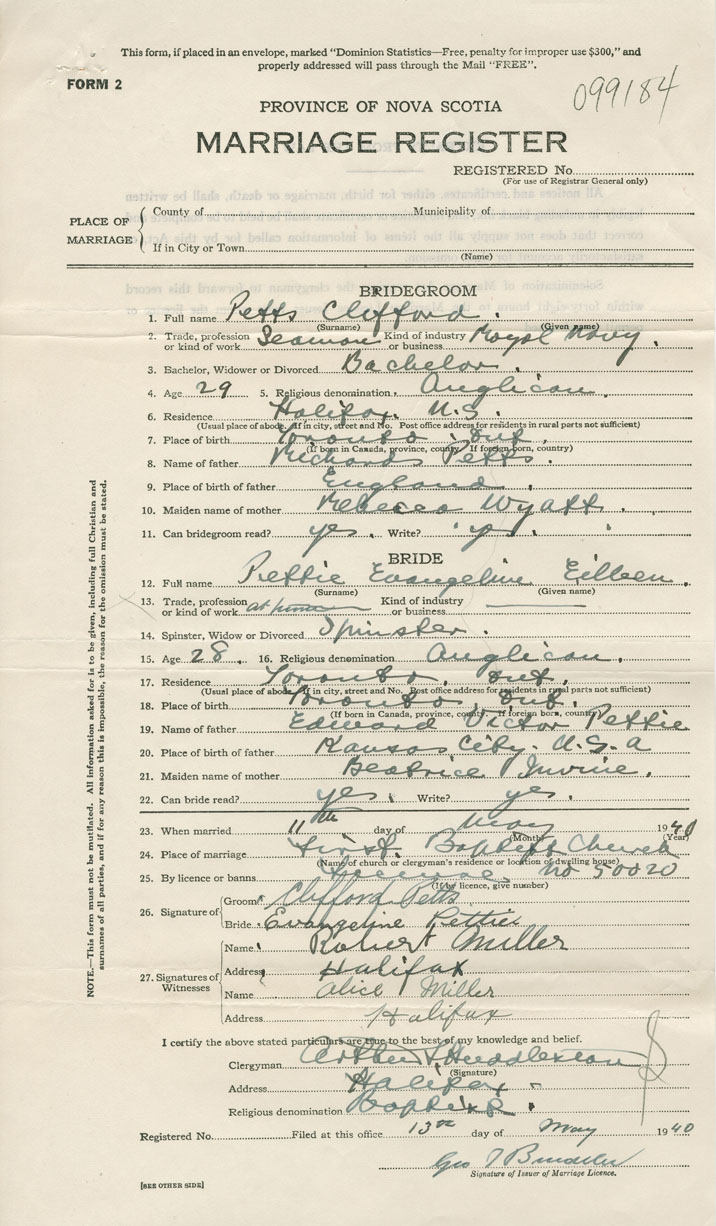 This form, if placed in an envelope, marked "Dominion Statistics—Free, penalty for improper use $300," and
properly addressed will pass through the Mail "FREE".
FORM 2
099184
PROVINCE OF NOVA SCOTIA
MARRIAGE REGISTER
REGISTERED No.
(For use of Registrar General only)
PLACE OF MARRIAGE
County of Municipality of
If in City or Town
(Name)
BRIDEGROOM
1. Full name Petts Clifford.
(Surname) (Given name)
2. Trade, profession or kind of work Seaman Kind of industry or business Royal Navy.
3. Bachelor, Widower or Divorced Bachelor.
4. Age 29 5. Religious denomination Anglican.
6. Residence Halifax. N.S.
(Usual place of abode. If in city, street and No. Post office address for residents in rural parts not sufficient)
7. Place of birth Toronto. Ont.
(If born in Canada, province, county. If foreign born, country)
8. Name of father Richard Petts.
9. Place of birth of father England.
10. Maiden name of mother Rebecca Wyatt.
11. Can bridegroom read? yes. Write? yes.
BRIDE
12. Full name Pettie Evangeline Eilleen.
(Surname) (Given name)
13. Trade, profession or kind of work at home Kind of industry or business
14. Spinster, Widow or Divorced Spinster.
15. Age 28. 16. Religious denomination Anglican.
17. Residence Toronto. Ont.
(Usual place of abode. If in city, street and No. Post office address for residents in rural parts not sufficient)
18. Place of birth Toronto. Ont.
(If born in Canada, province, county. If foreign born, country)
19. Name of father Edward Victor Pettie
20. Place of birth of father Kansas City. U.S.A
21. Maiden name of mother Beatrice Irvine.
22. Can bride read? yes. Write? yes.
23. When married 11th day of May 1940
(Month) (Year)
24. Place of marriage First Baptist Church
(Name of church or clergyman's residence or location of dwelling house)
25. By licence or banns License No 50020
(If by licence, give number)
26. Signature of Groom Clifford Petts
Bride Evangeline Pettie
27. Signatures of Witnesses
Name Robert Miller
Address Halifax
Name Alice Miller
Address Halifax
I certify the above stated particulars are true to the best of my knowledge and belief.
Clergyman Arthur
(Signature)
Address Halifax
Religious denomination Baptist.
Registered No. Filed at this office 13th day of May 1940
Geo
Signature of Issuer of Marriage Licence.
[SEE OTHER SIDE]
NOTE.—This form must not be mutilated. All information asked for is to be given, including full Christian and
surnames of all parties, and if for any reason this is impossible, the reason for the omission must be stated.